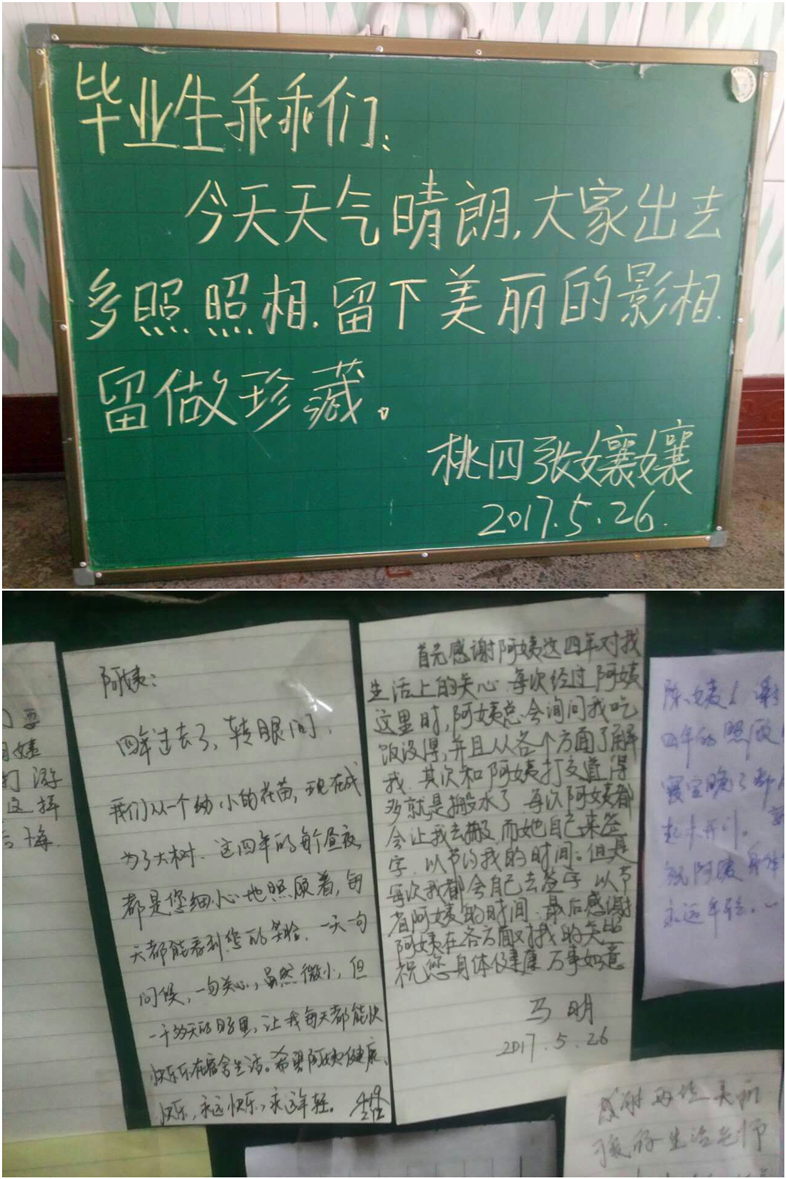 毕业生乖乖们：
今天天气晴朗,大家出去
多照照相.留下美丽的影相.
留做珍藏。
桃四张孃孃
2017.5.26.
阿姨：
四年过去了,转眼间,
我们从一个幼小的花苗,现在成
为了大树.这四年的每个昼夜
都是您细心地照顾着,每
天都能看到您的笑脸.一天一句
问候,一句关心,虽然微小,但
一千多天的日子里,让我每天都能快
快乐乐在宿舍生活。希望阿姨健康、
快乐,永远快乐,永远年轻。
首先感谢阿姨这四年对我
生活上的关心.每次经过阿姨
这里时,阿姨总会询问我吃
饭没得,并且从各个方面了解
我.其次和阿姨打交道得
多就是搬水了.每次阿姨都
会让我去搬而她自己来签
字.以节约我的时间。但是
每次我都会自己去签字以节
省阿姨的时间.最后感谢
阿姨在各方面对我的关照
祝您身体健康 万事如意
马明
2017.5.26
陈姨:谢
四年的照顾
寝室晚了都
起来开门。
祝阿姨身体
永远年轻.
打游
后悔
感谢
生活老师